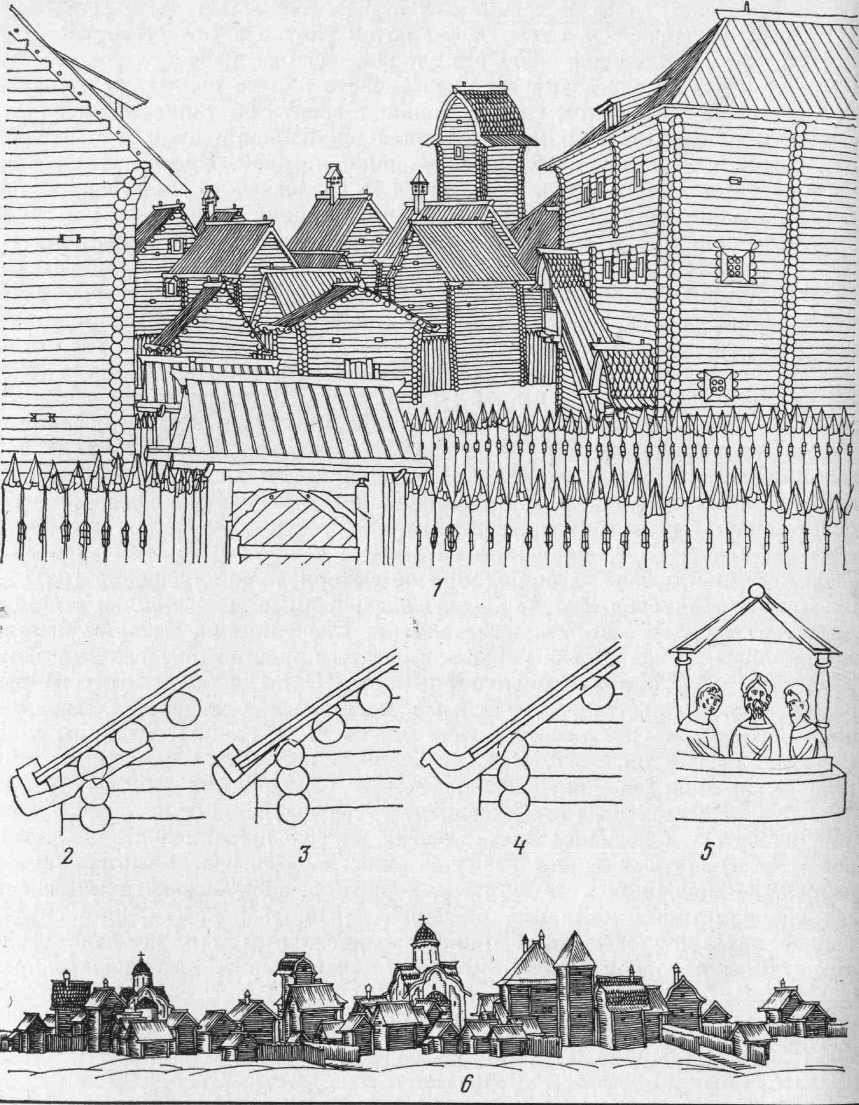 1
2
3
4
5
6